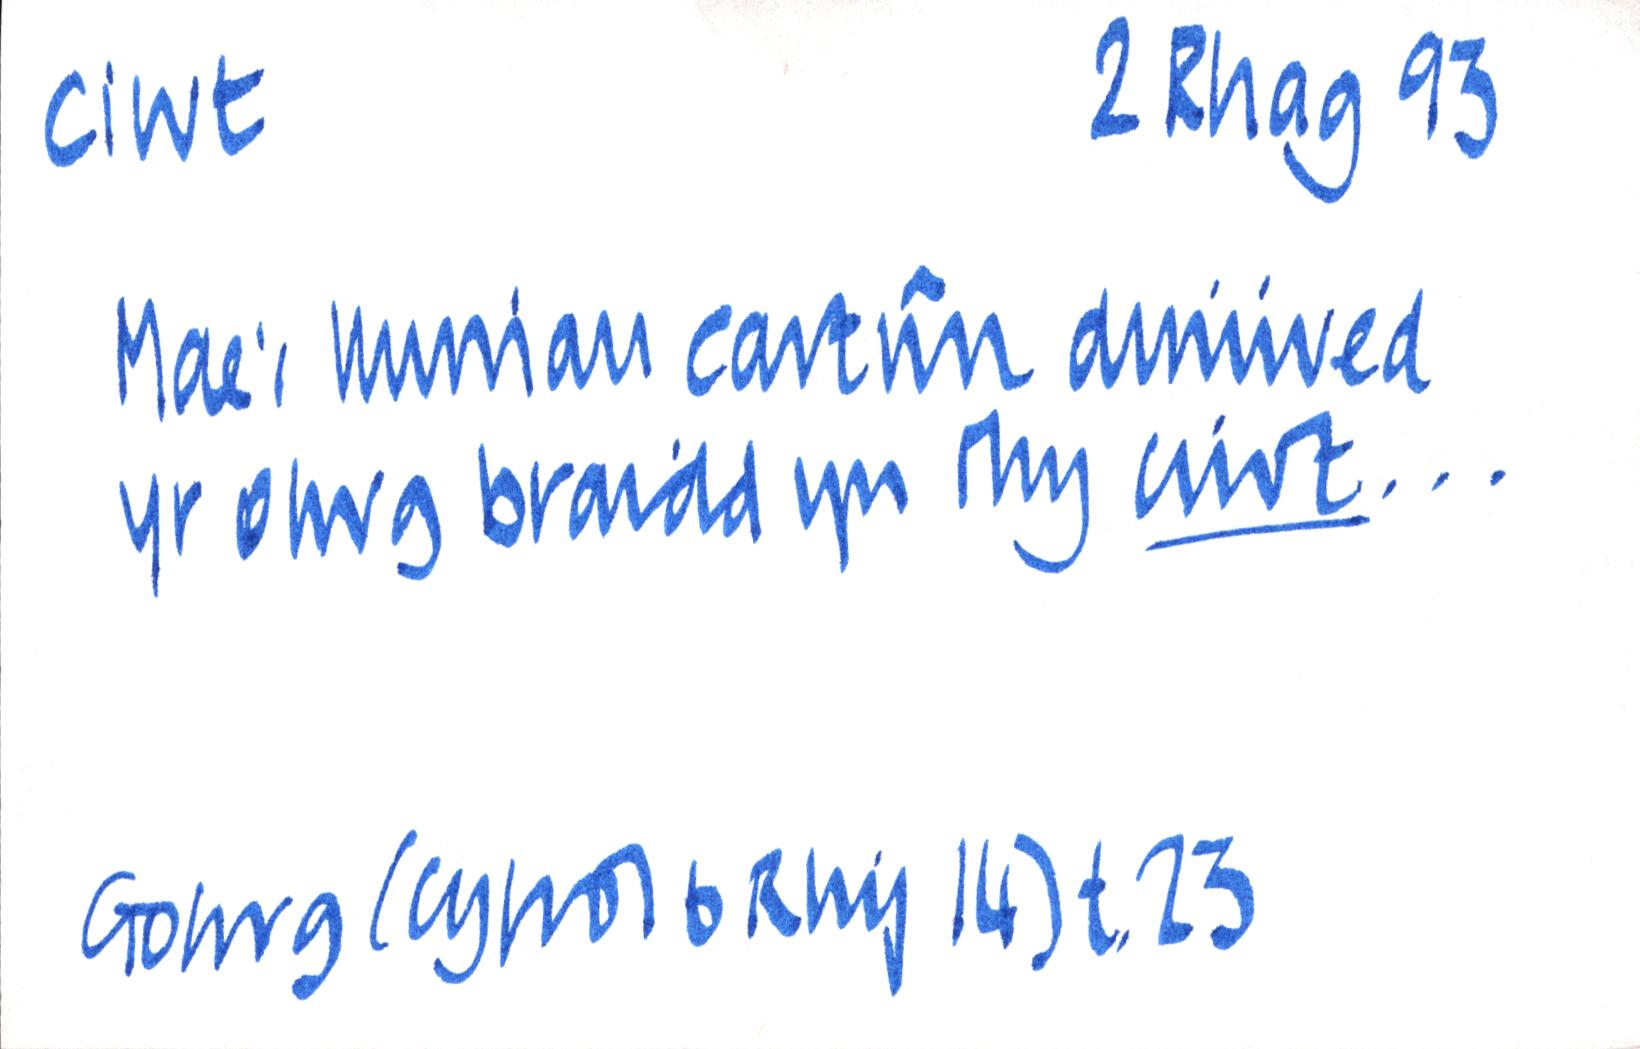 ciwt 2 Rhag 93
Mae'r lluniau cartŵn diniwed
yr olwg braidd yn rhy ciwt...
Golwg (Cyfrol 6 Rhif 14) t. 23